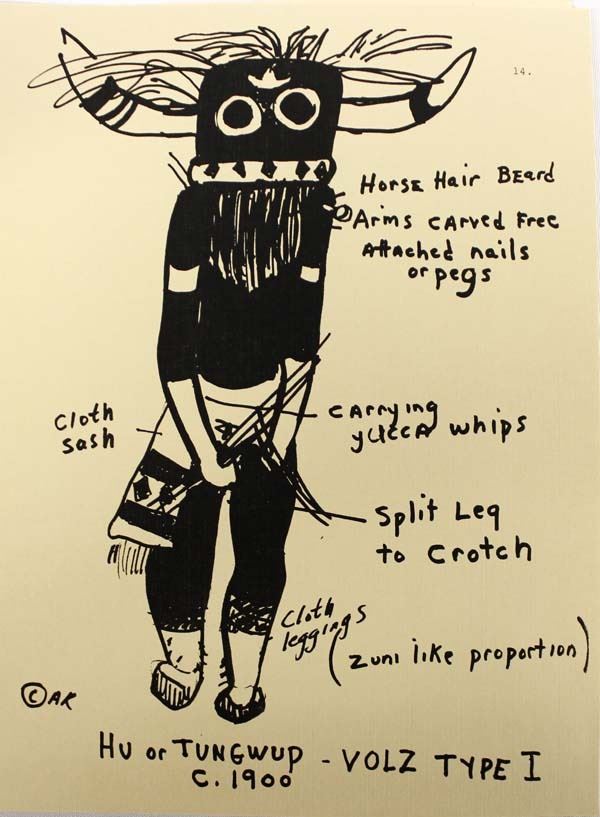 14.
Horse Hair BEard
Arms CArved Free
Attached nails
or pegs
Cloth
sash
CArrying
yUCCA whips
Split Leg
to Crotch
Cloth
leggings
(Zuni like proportion)
©AK
HU or TUNGWUP - VOLZ TYPE I
C. 1900